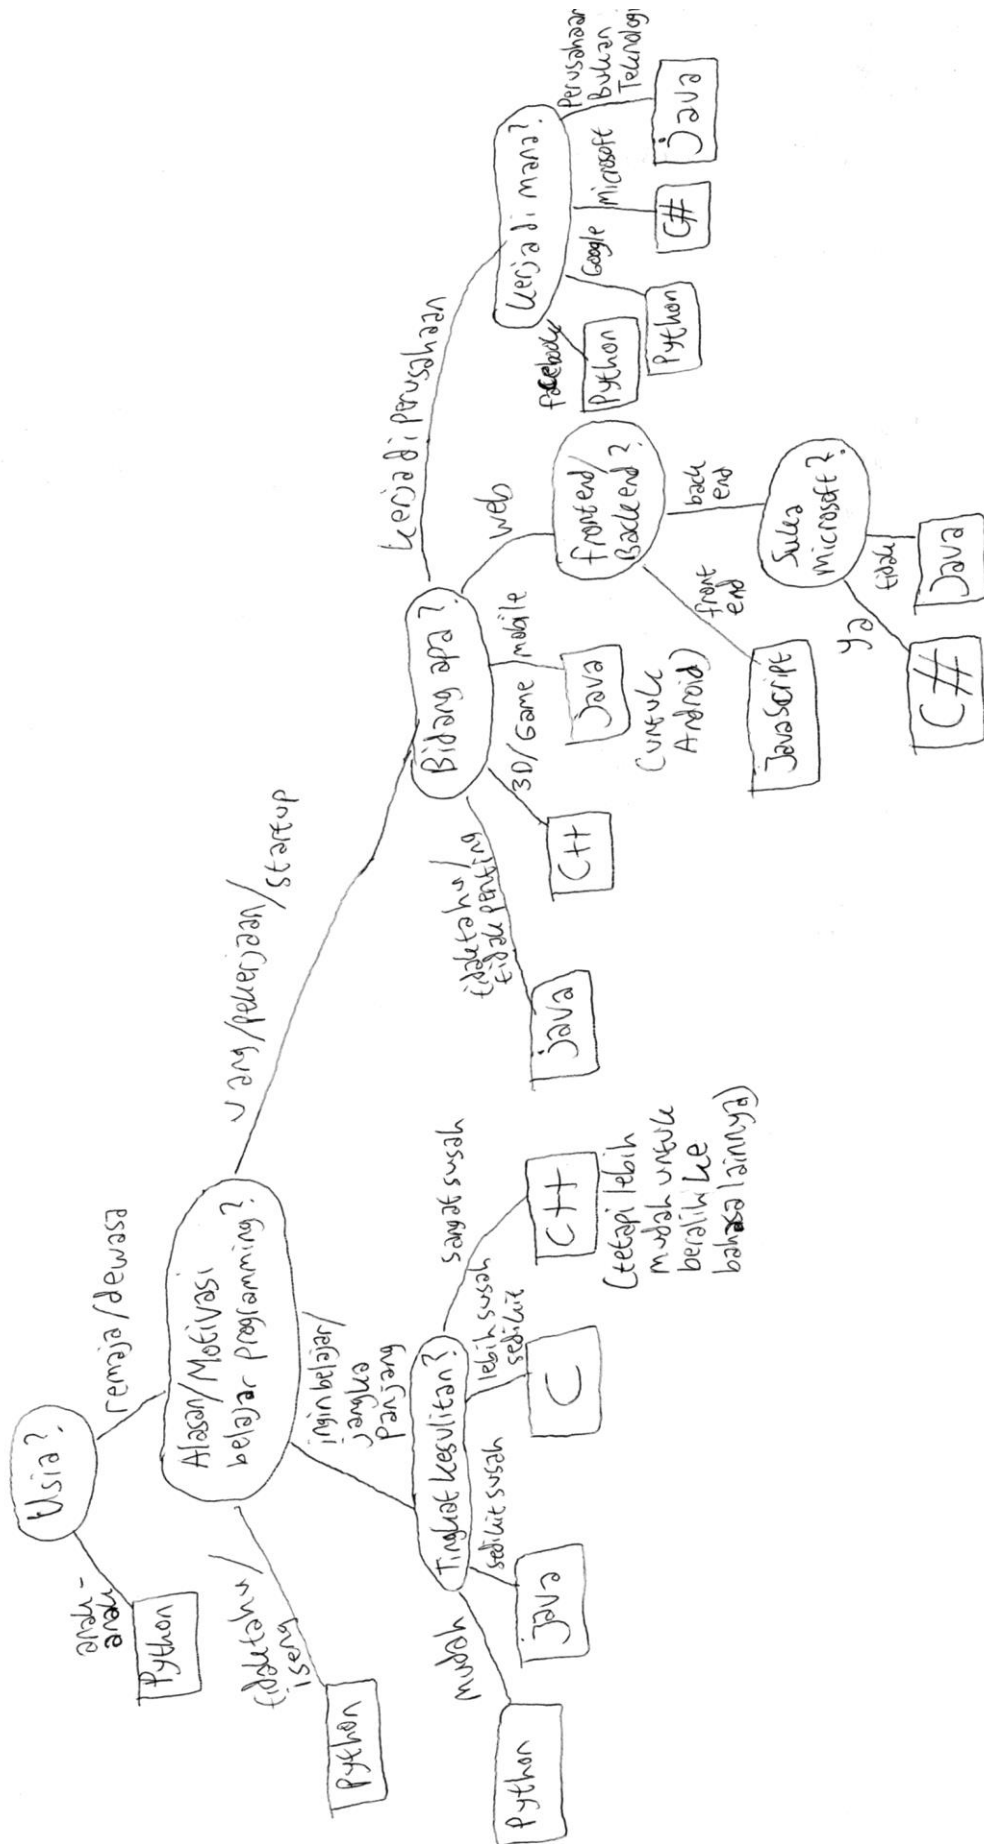 Usia?
anak-
anak
Python
remaja/dewasa
Alasan/Motivasi
belajar programming?
tidak tahu/
iseng
Python
ingin belajar/
jangka
Panjang
Tingkat kesulitan?
mudah
Python
sedikit susah
java
lebih susah
sedikit
C
sangat susah
C++
(tetapi lebih
mudah untuk
beralih ke
bahasa lainnya)
uang/pekerjaan/
startup
Bidang apa?
tidak tahu/
tidak penting
java
3D/Game
C++
mobile
java
(untuk
Android)
web
frontend/
Backend?
front
end
JavaScript
back
end
Suka
microsoft?
ya
C#
tidak
Java
kerja di Perusahaan
kerja di mana?
facebook
Python
Google
Python
microsoft
C#
Perusahaan
Bukan
Teknologi
java